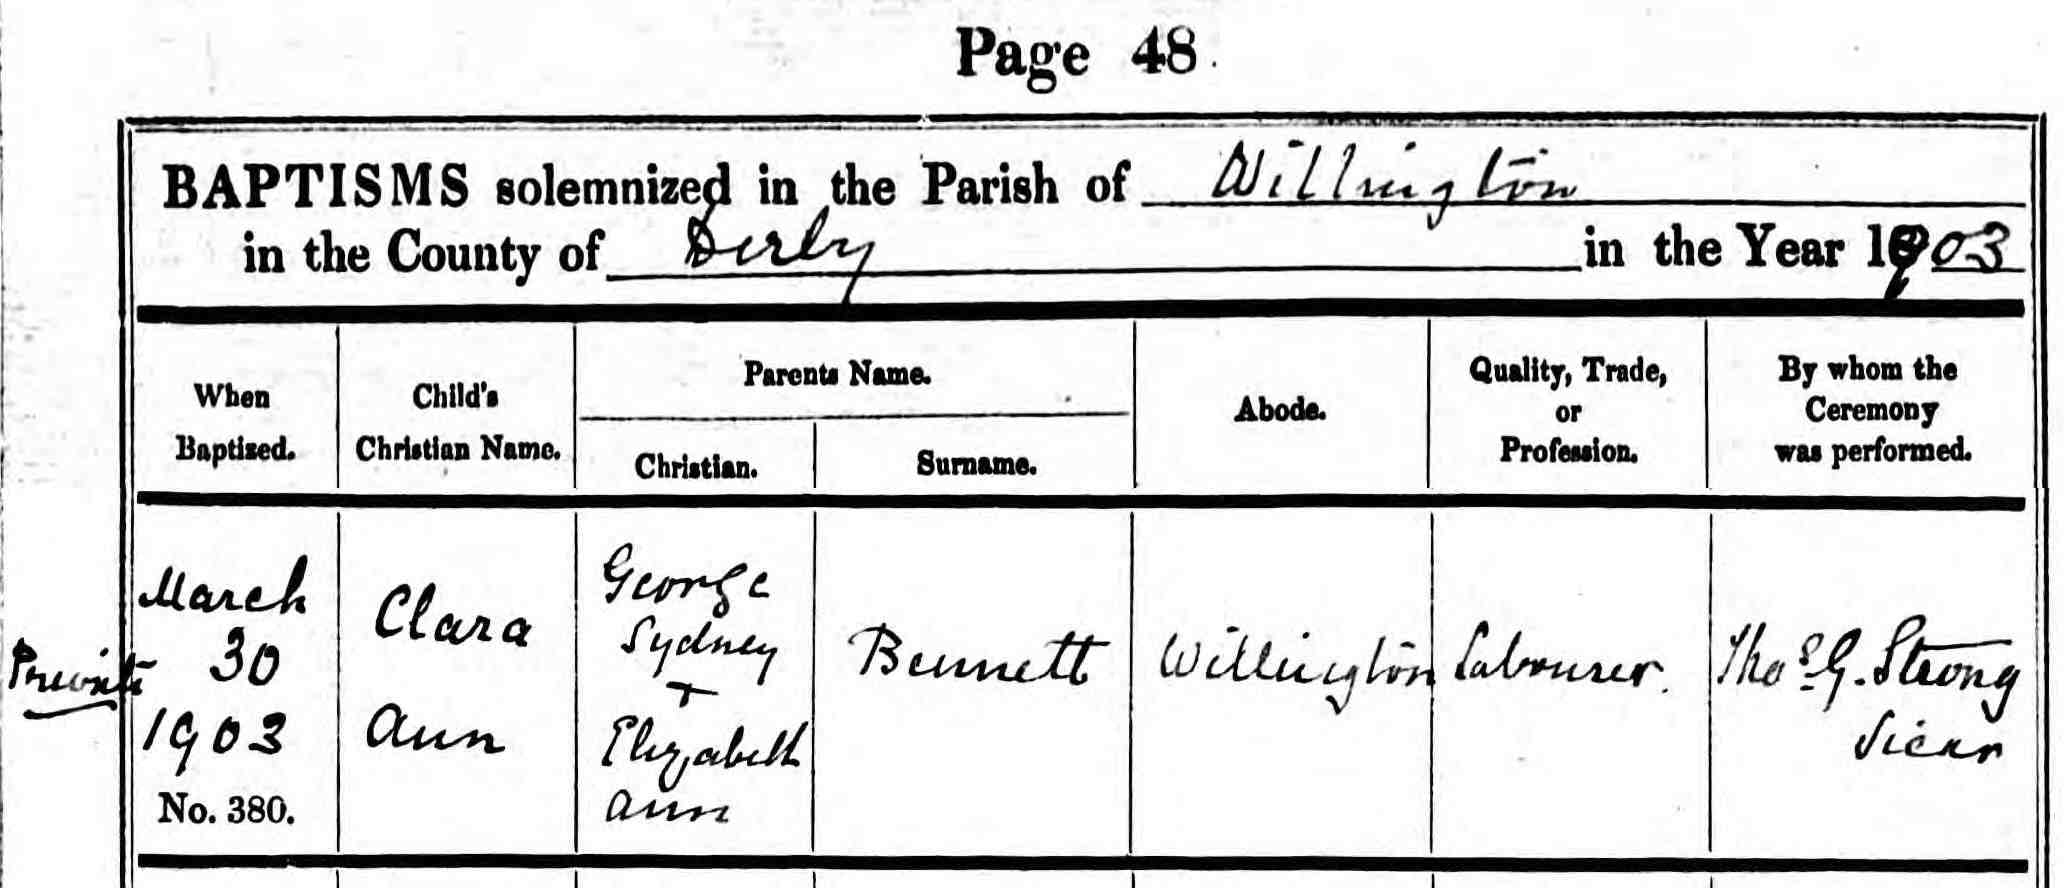 Page 48.
BAPTISMS solemnized in the Parish of Willington
in the County of Derby in the Year 1903
When Baptized.
Child's Christian Name.
Parents Name.
Christian.
Surname.
Abode.
Quality, Trade, or Profession.
By whom the Ceremony was performed.
Private
March
30
1903
No. 380.
Clara
Ann
George
Sydney
+
Elizabeth
Ann
Bennett
Willington
Labourer.
Thos. G. Strong
Vicar